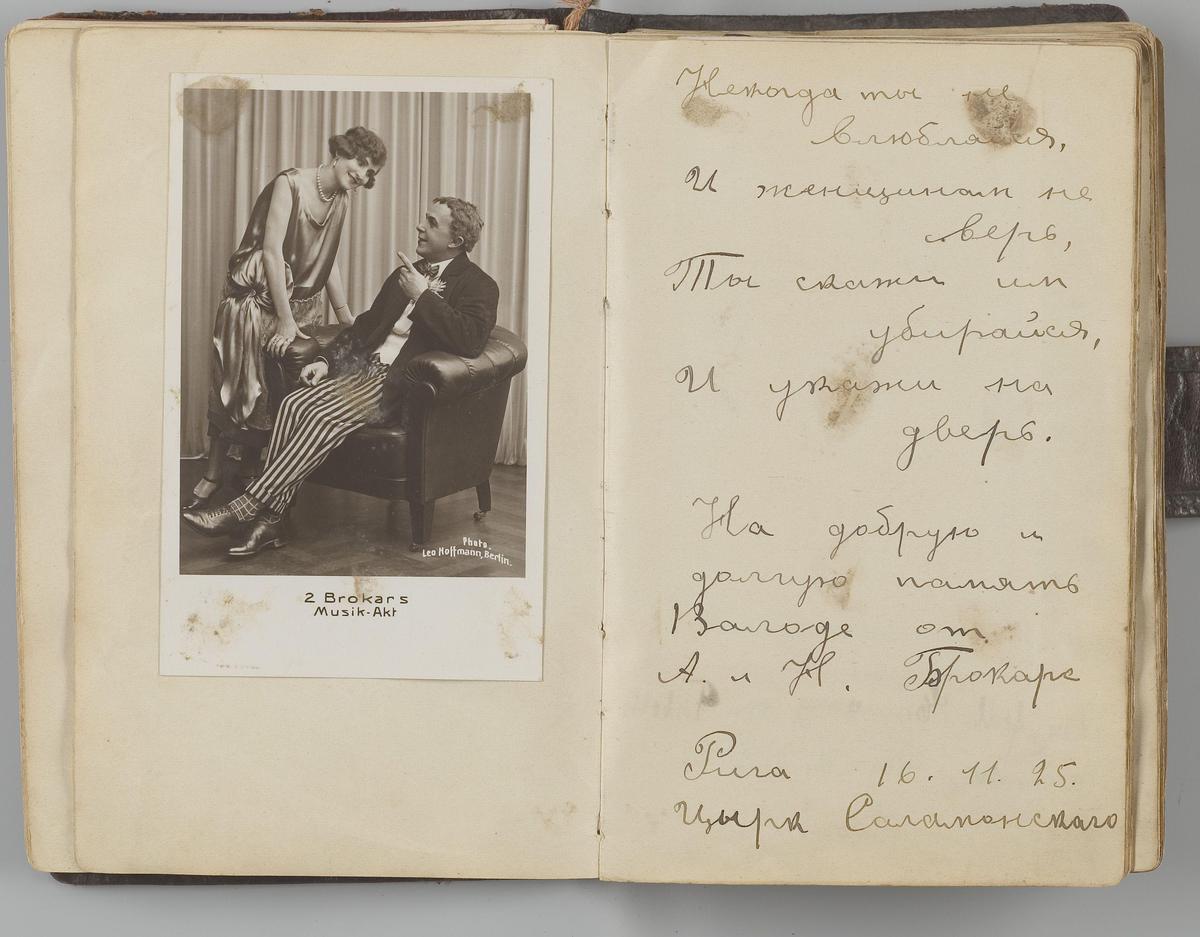 Photo.
Leo Hoffmann, Berlin.
2 Brokars
Musik-Akt
Некогда ты не
влюбляйся,
И женщинам не
верь,
Ты скажи им
убирайся,
И укажи на
дверь.
На добрую и
долгую память
Валоде от
А. и Н. Брокарс
Рига 16. 11. 25.
Цырк Саламонскаго